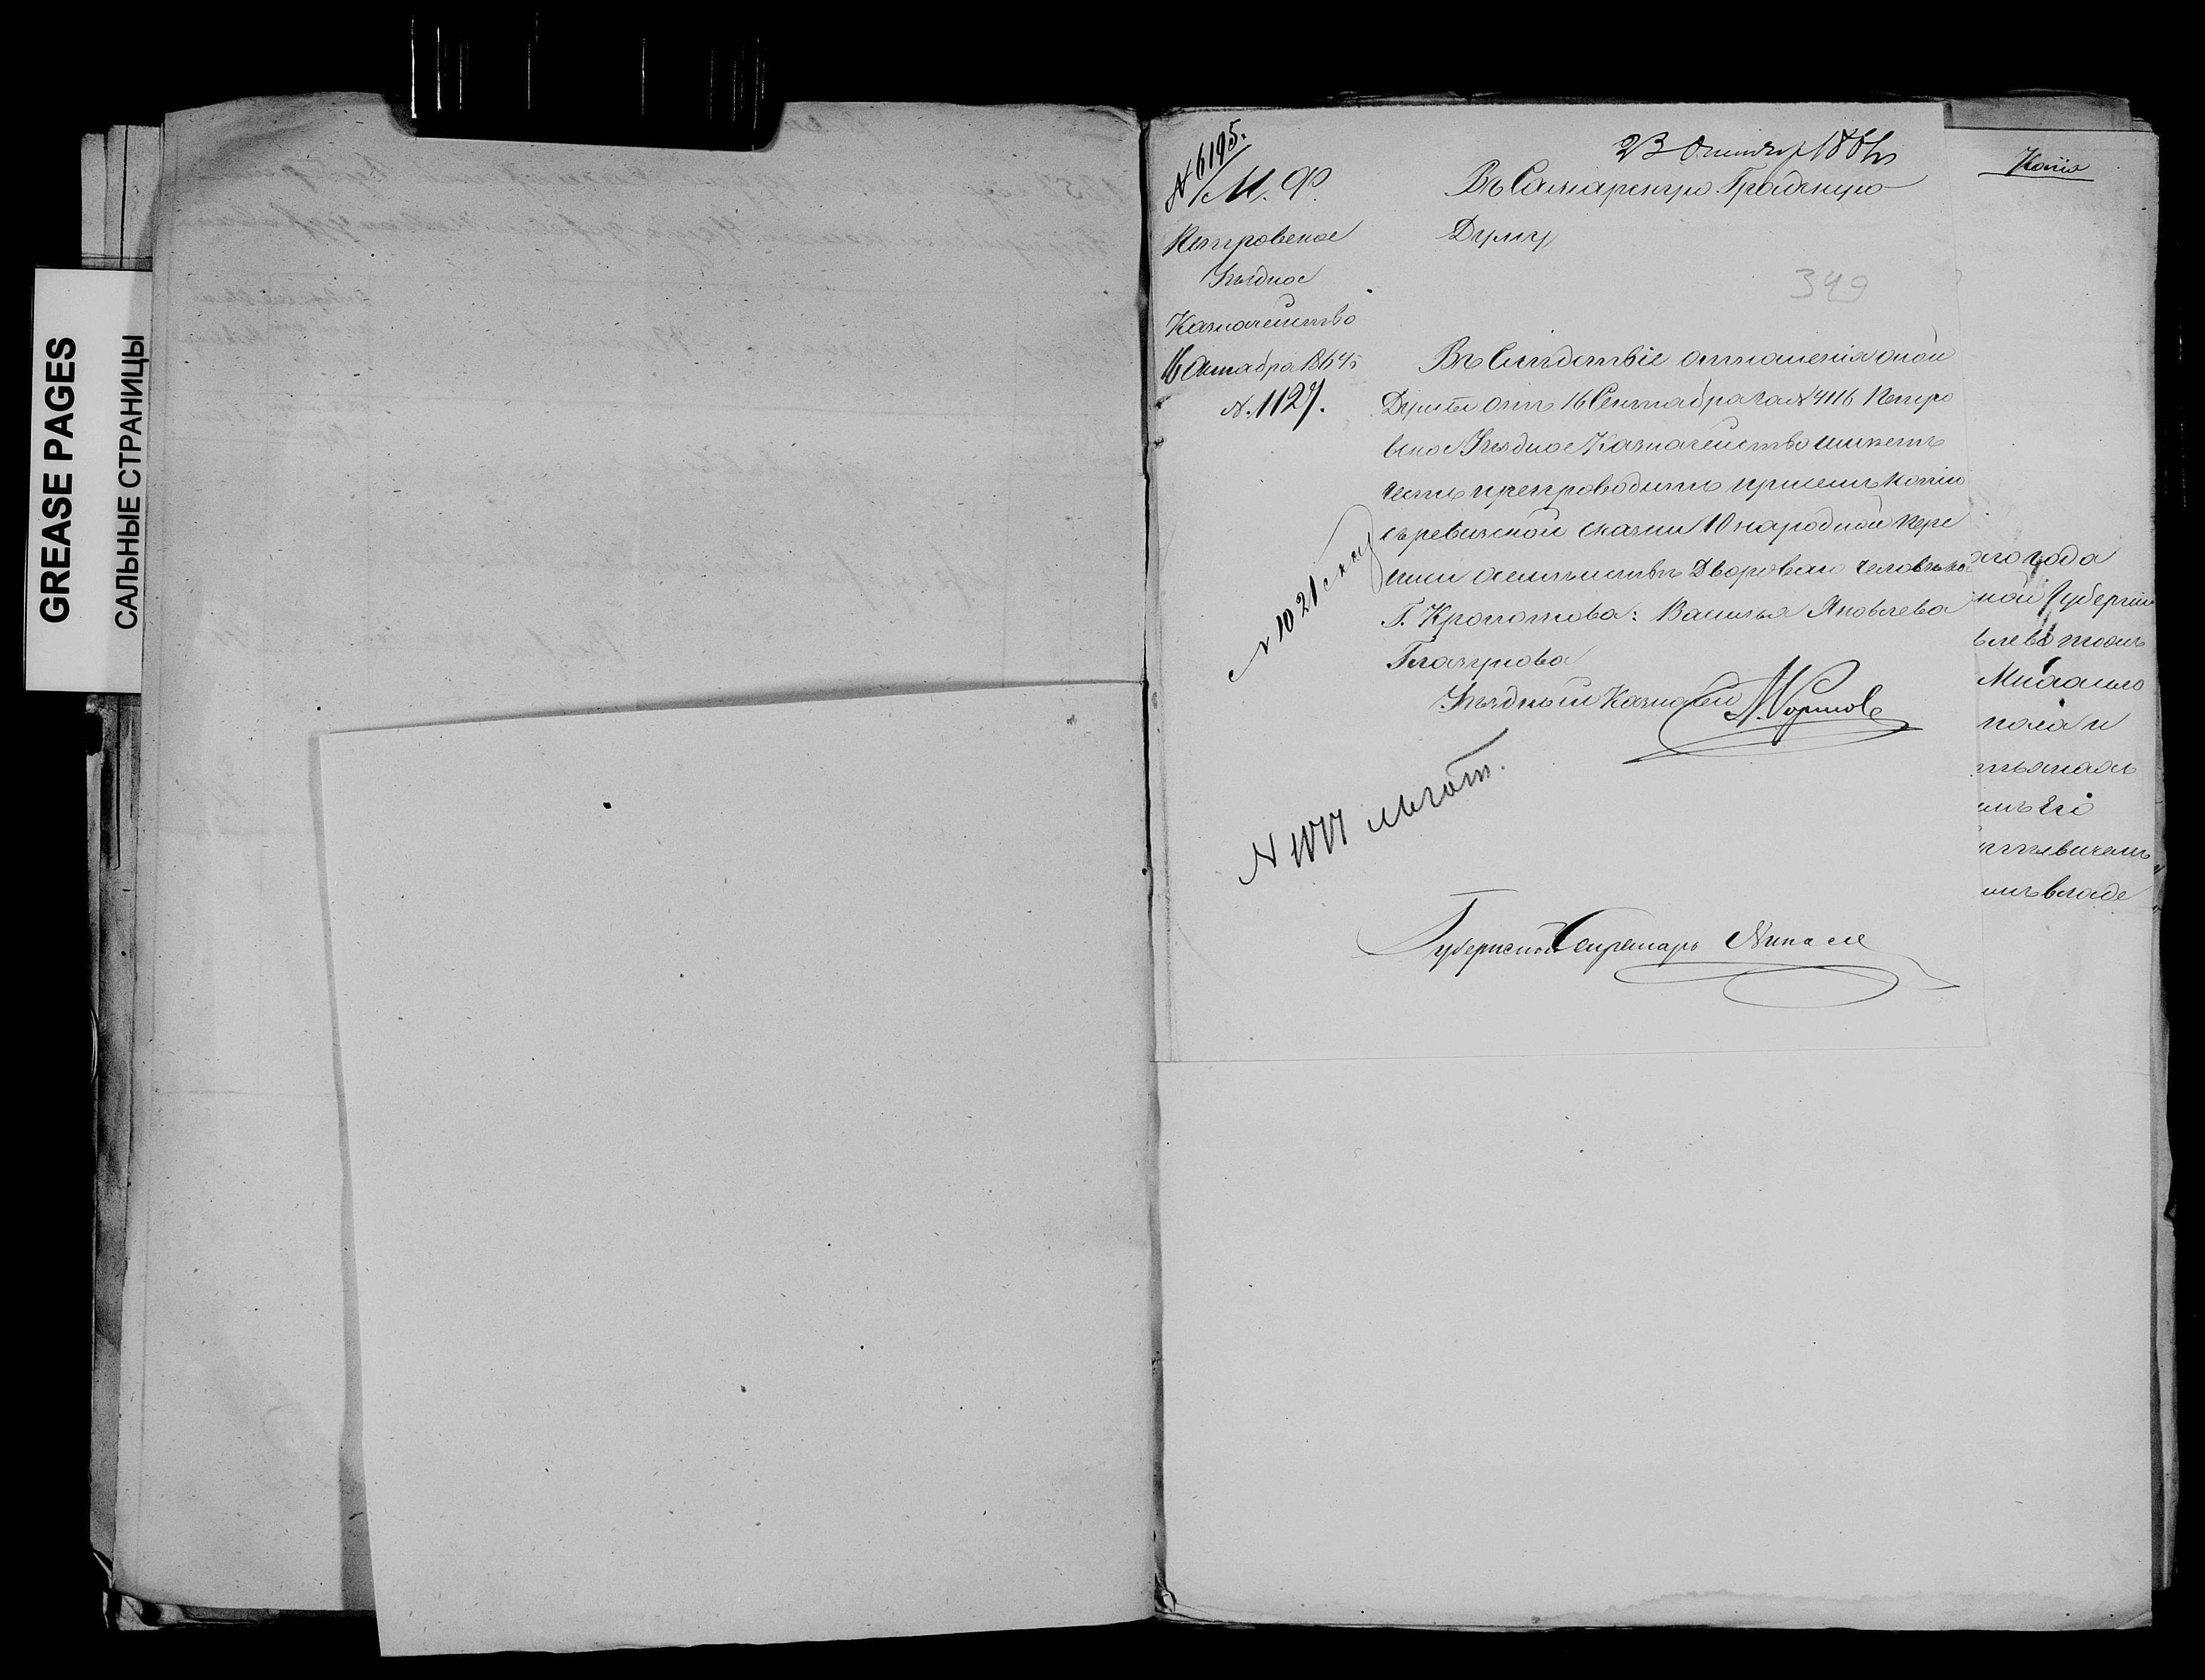 GREASE PAGES
САЛЬНЫЕ СТРАНИЦЫ
№ 6195.
23 Октября 1864
М. Ф.
Петровское
Уѣздное
Казначейство
16 Октября 1864 г.
№ 1127.
Въ Самарскую Градскую
Думу
349
Въ слѣдствіе отношенія оной
Думы отъ 16 Сентября за № 4116 Петро
вское Уѣздное Казначейство имѣетъ
честь препроводить при семъ копію
съ ревизской сказки 10 народной пере
писи о семействѣ Двороваго человѣка
Г. Кропотова: Василья Яковлева
Глазунова
Уѣздный Казначей
№ 1021
№
Губернскій Секретарь
Копія
го года
ной Губерніи
Михаило
пола и
имъ его
имъ владе